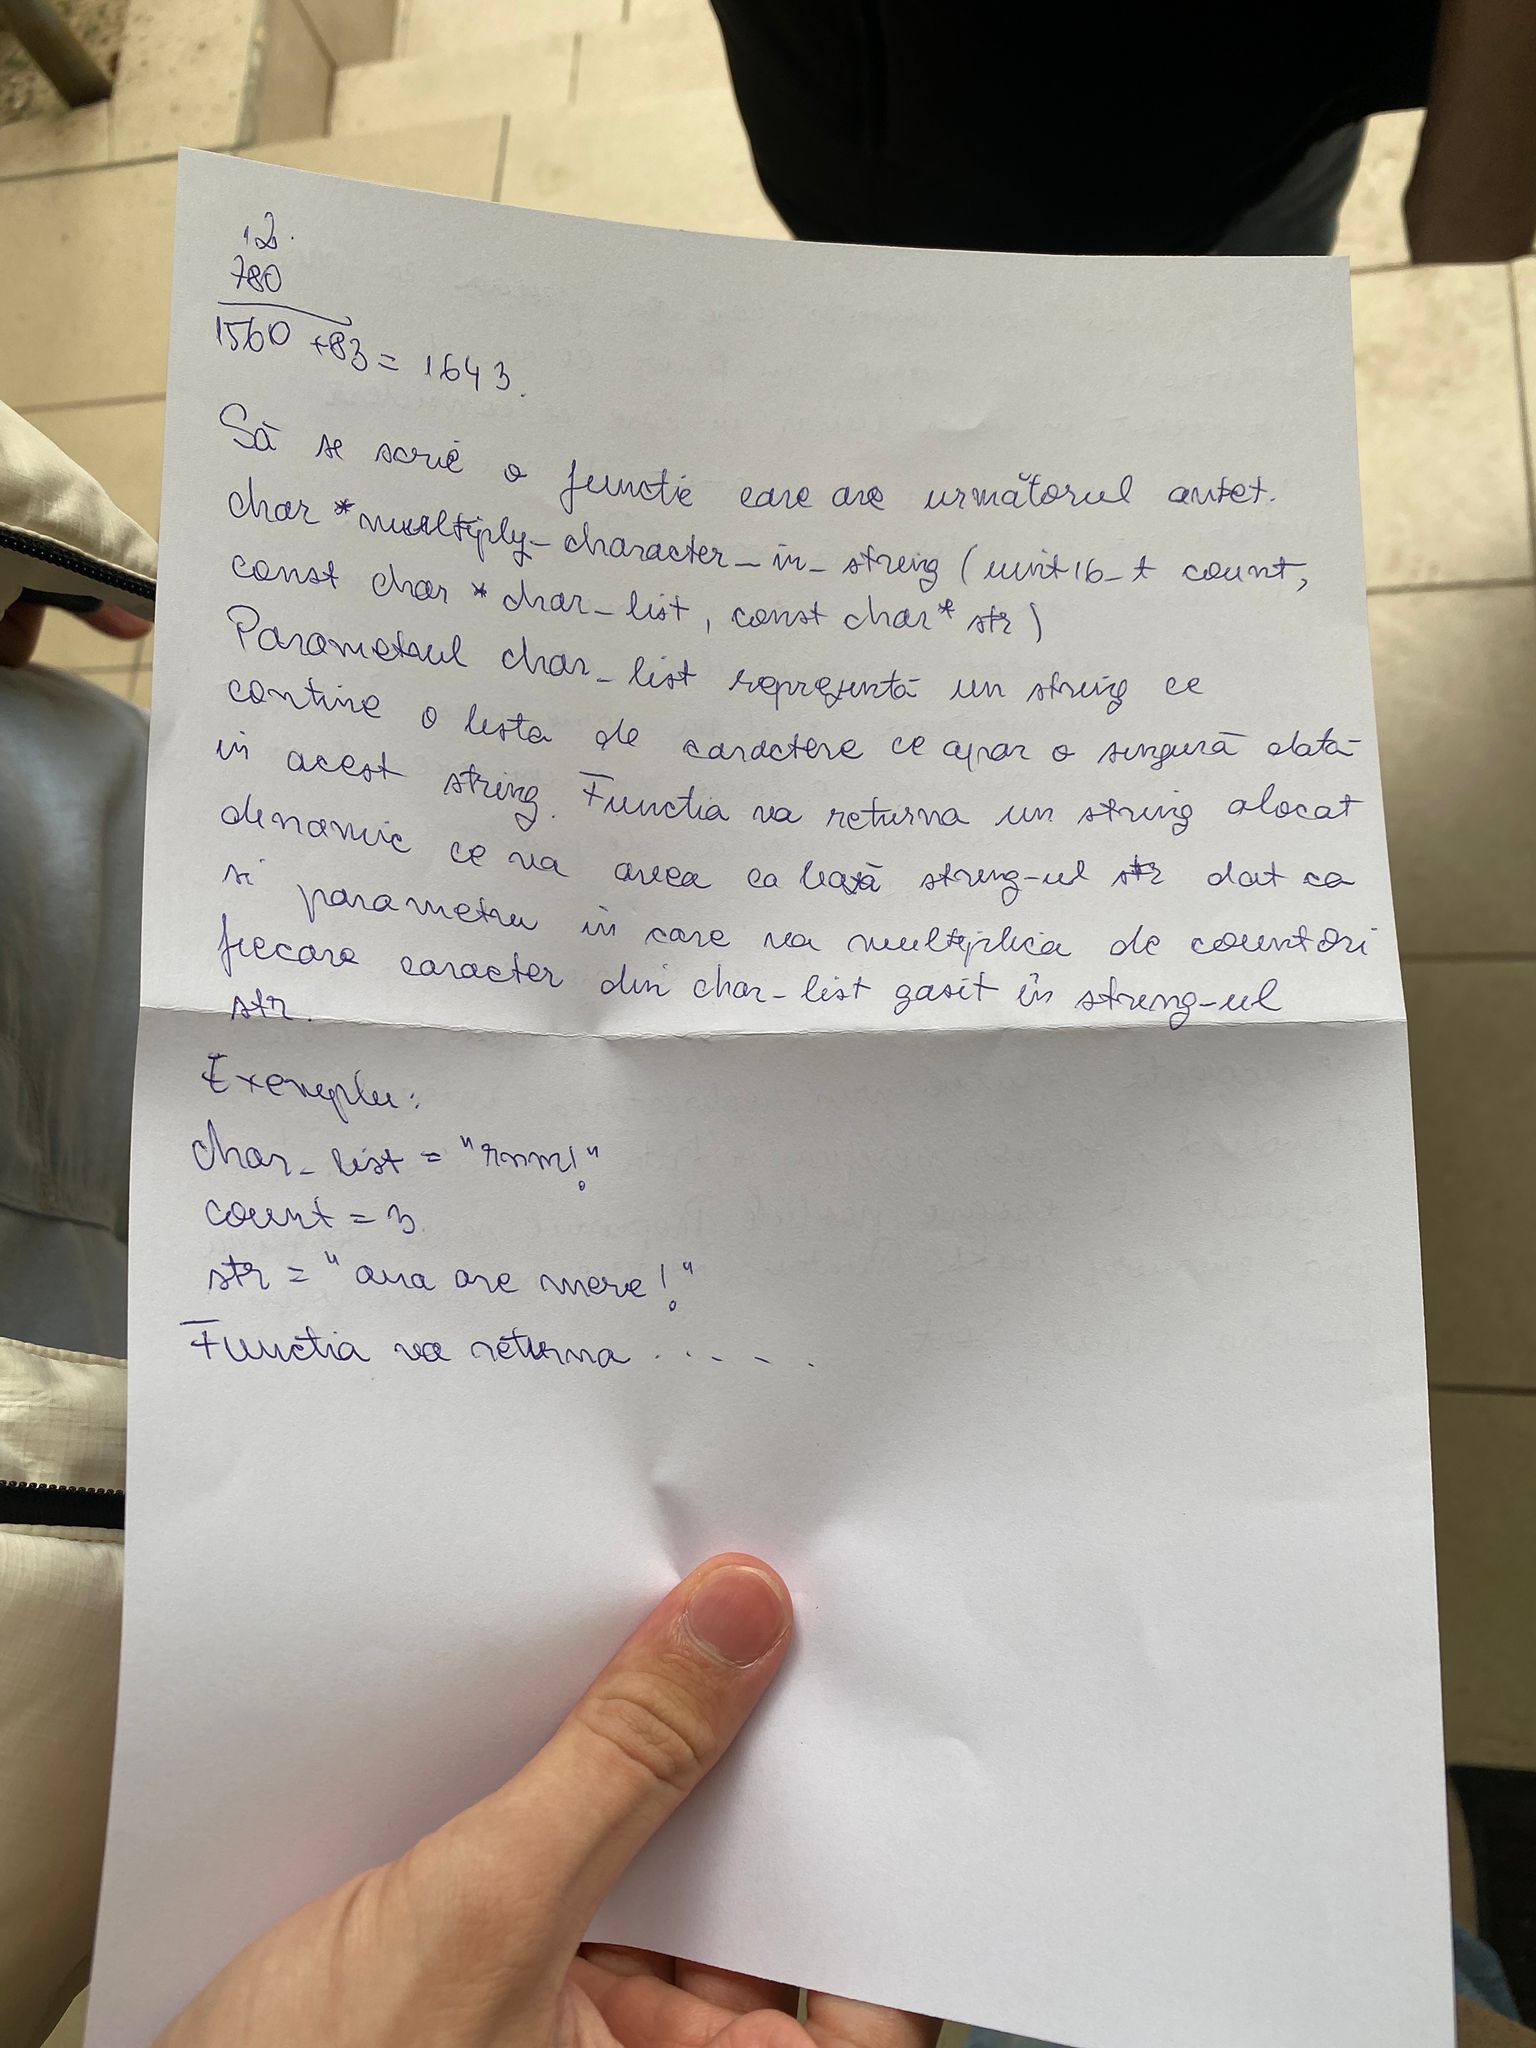 12.
780
1560 +83 = 1643.
Să se scrie o functie care are următorul antet.
char *multiply_character_in_string (uint16_t count,
const char * char_list, const char* str)
Parametrul char_list reprezintă un string ce
contine o lista de caractere ce apar o singură dată
in acest string. Functia va returna un string alocat
dinamic ce va avea ca bază string-ul str dat ca
si parametru in care va multiplica de count ori
fiecare caracter din char_list gasit în string-ul
str.
Exemplu:
char_list = "rnm!"
count = 3
str = "ana are mere!"
Functia va returna .....